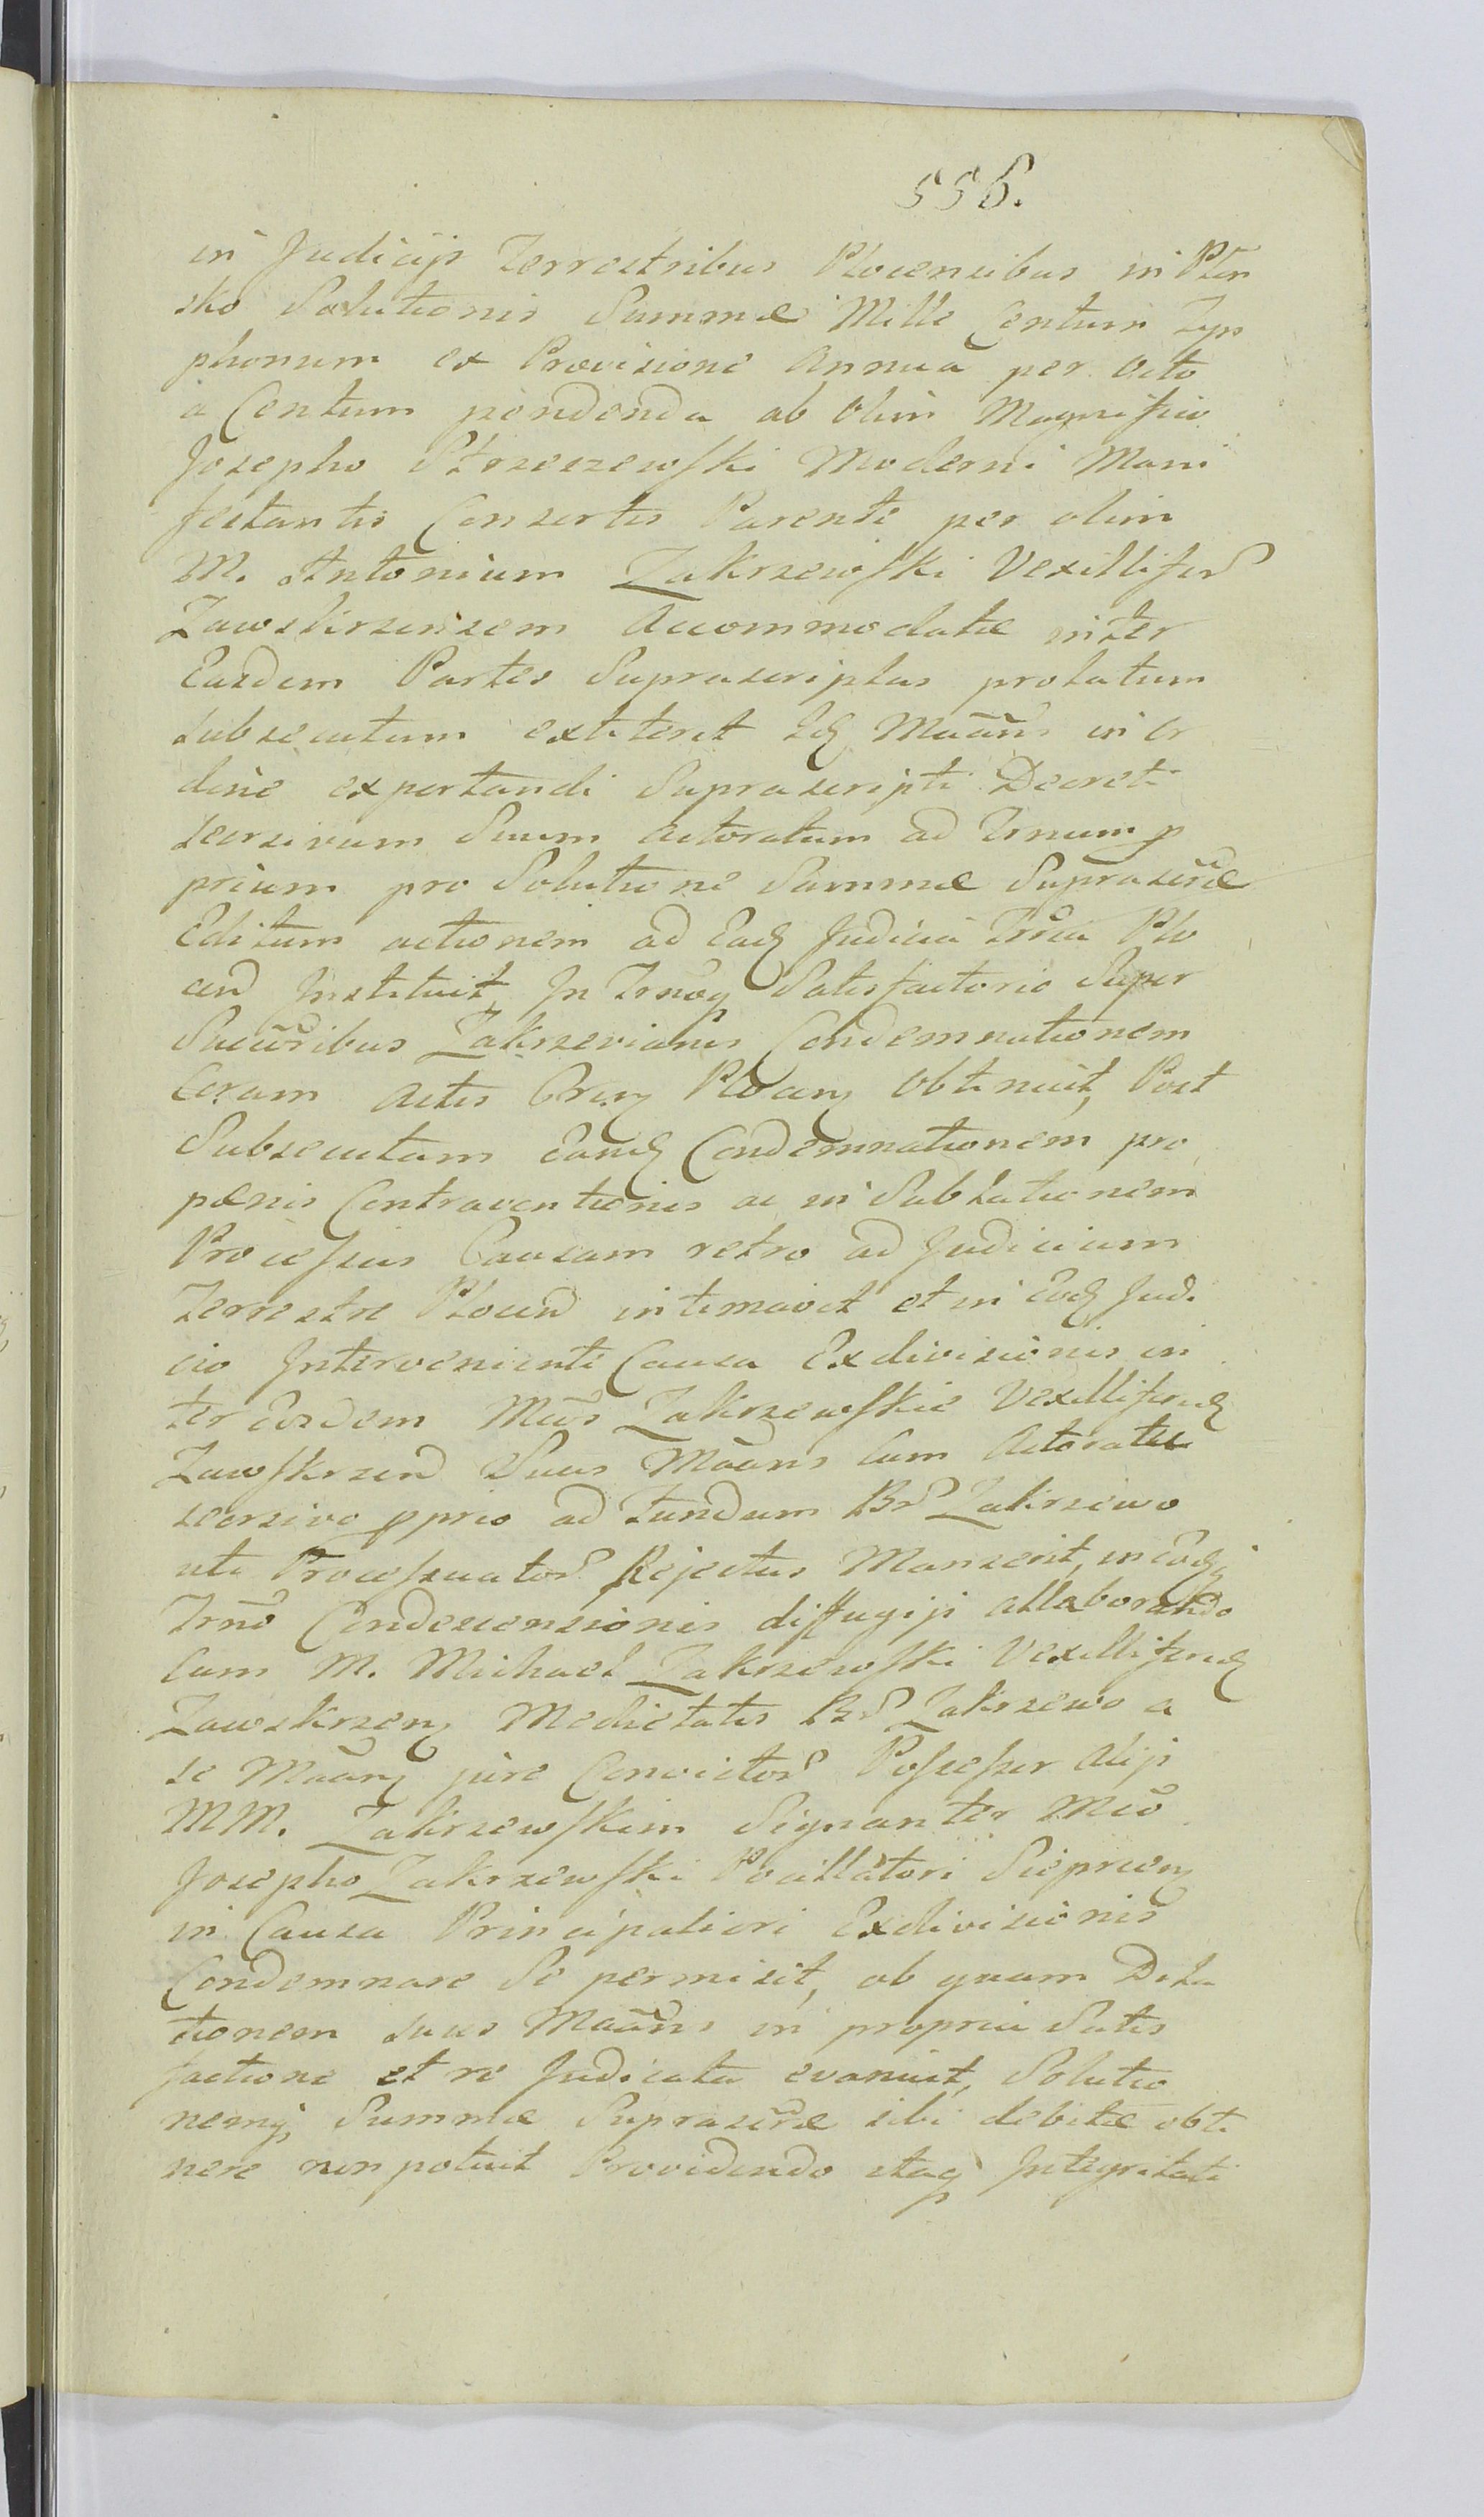 556.
in Judicijs Terrestribus Plocensibus in Płon
sko Solutionis Summæ Mille Centum Tyn
phonum ex Provisione Annuâ per Octo
à Centum pendenda ab Olim Magnifico
Josepho Strzeszewski Moderni Mani
festantis Consortis Parente per olim
M. Antonium Zakrzewski Vexilliferũ
Zawskrzensem Accommodatæ inter
Easdem Partes Suprascriptas prolatum
subsecutum extiterit Idq Mããns in Or
dine exportandi Suprascripti Decreti
seorsivum Suum Actoratum ad Trnum p
prium pro Solutione Summæ Suprascr̃æ
Editum actionem ad Eadq Judicia Trr̃ia Plo
cen̄ Instituit, In Trnõq Satisfactorio Super
Succr̃ibus Zakrzevianis Condemnationem
Coram Actis Cren Plocen obtinuit, Post
Subsecutam Eandq Condemnationem pro
pœnis Contraventionis ac in Sublationem
Processus Causam retro ad Judicium
Terrestre Plocen̄ intimavit et in Eodq Judi
cio Interveniente Causa Exdivisionis in
ter Eosdem Mcõs Zakrzewskie Vexilliferid
Zawskrzen̄ Suus Mããns Cum Actoratu
seorsivo pprio ad Fundum Bõ Zakrzewo
uti Processuator Rejectus Manserit, in Eodq
Trnõ Condescensionis diffugiji allaborando
Cum M. Michael Zakrzewski Vexilliferid
Zawskrzen Medietatis Bõ Zakrzewo a
se Mããn jure Convictor Possessor Alijs
MM. Zakrzewskim Signanter Mcõ
Josepho Zakrzewski Pocillatori Sieprcen
in Causa Principaliori Exdivisionis
Condemnare Se permisit, ob quam Dila
tionem suus Mããns in propria Satis
factione et re Judicata evanuit, Solutio
nemq, Summæ Suprascr̃æ sibi debitæ obti
nere non potuit Providendo itaq Integritati